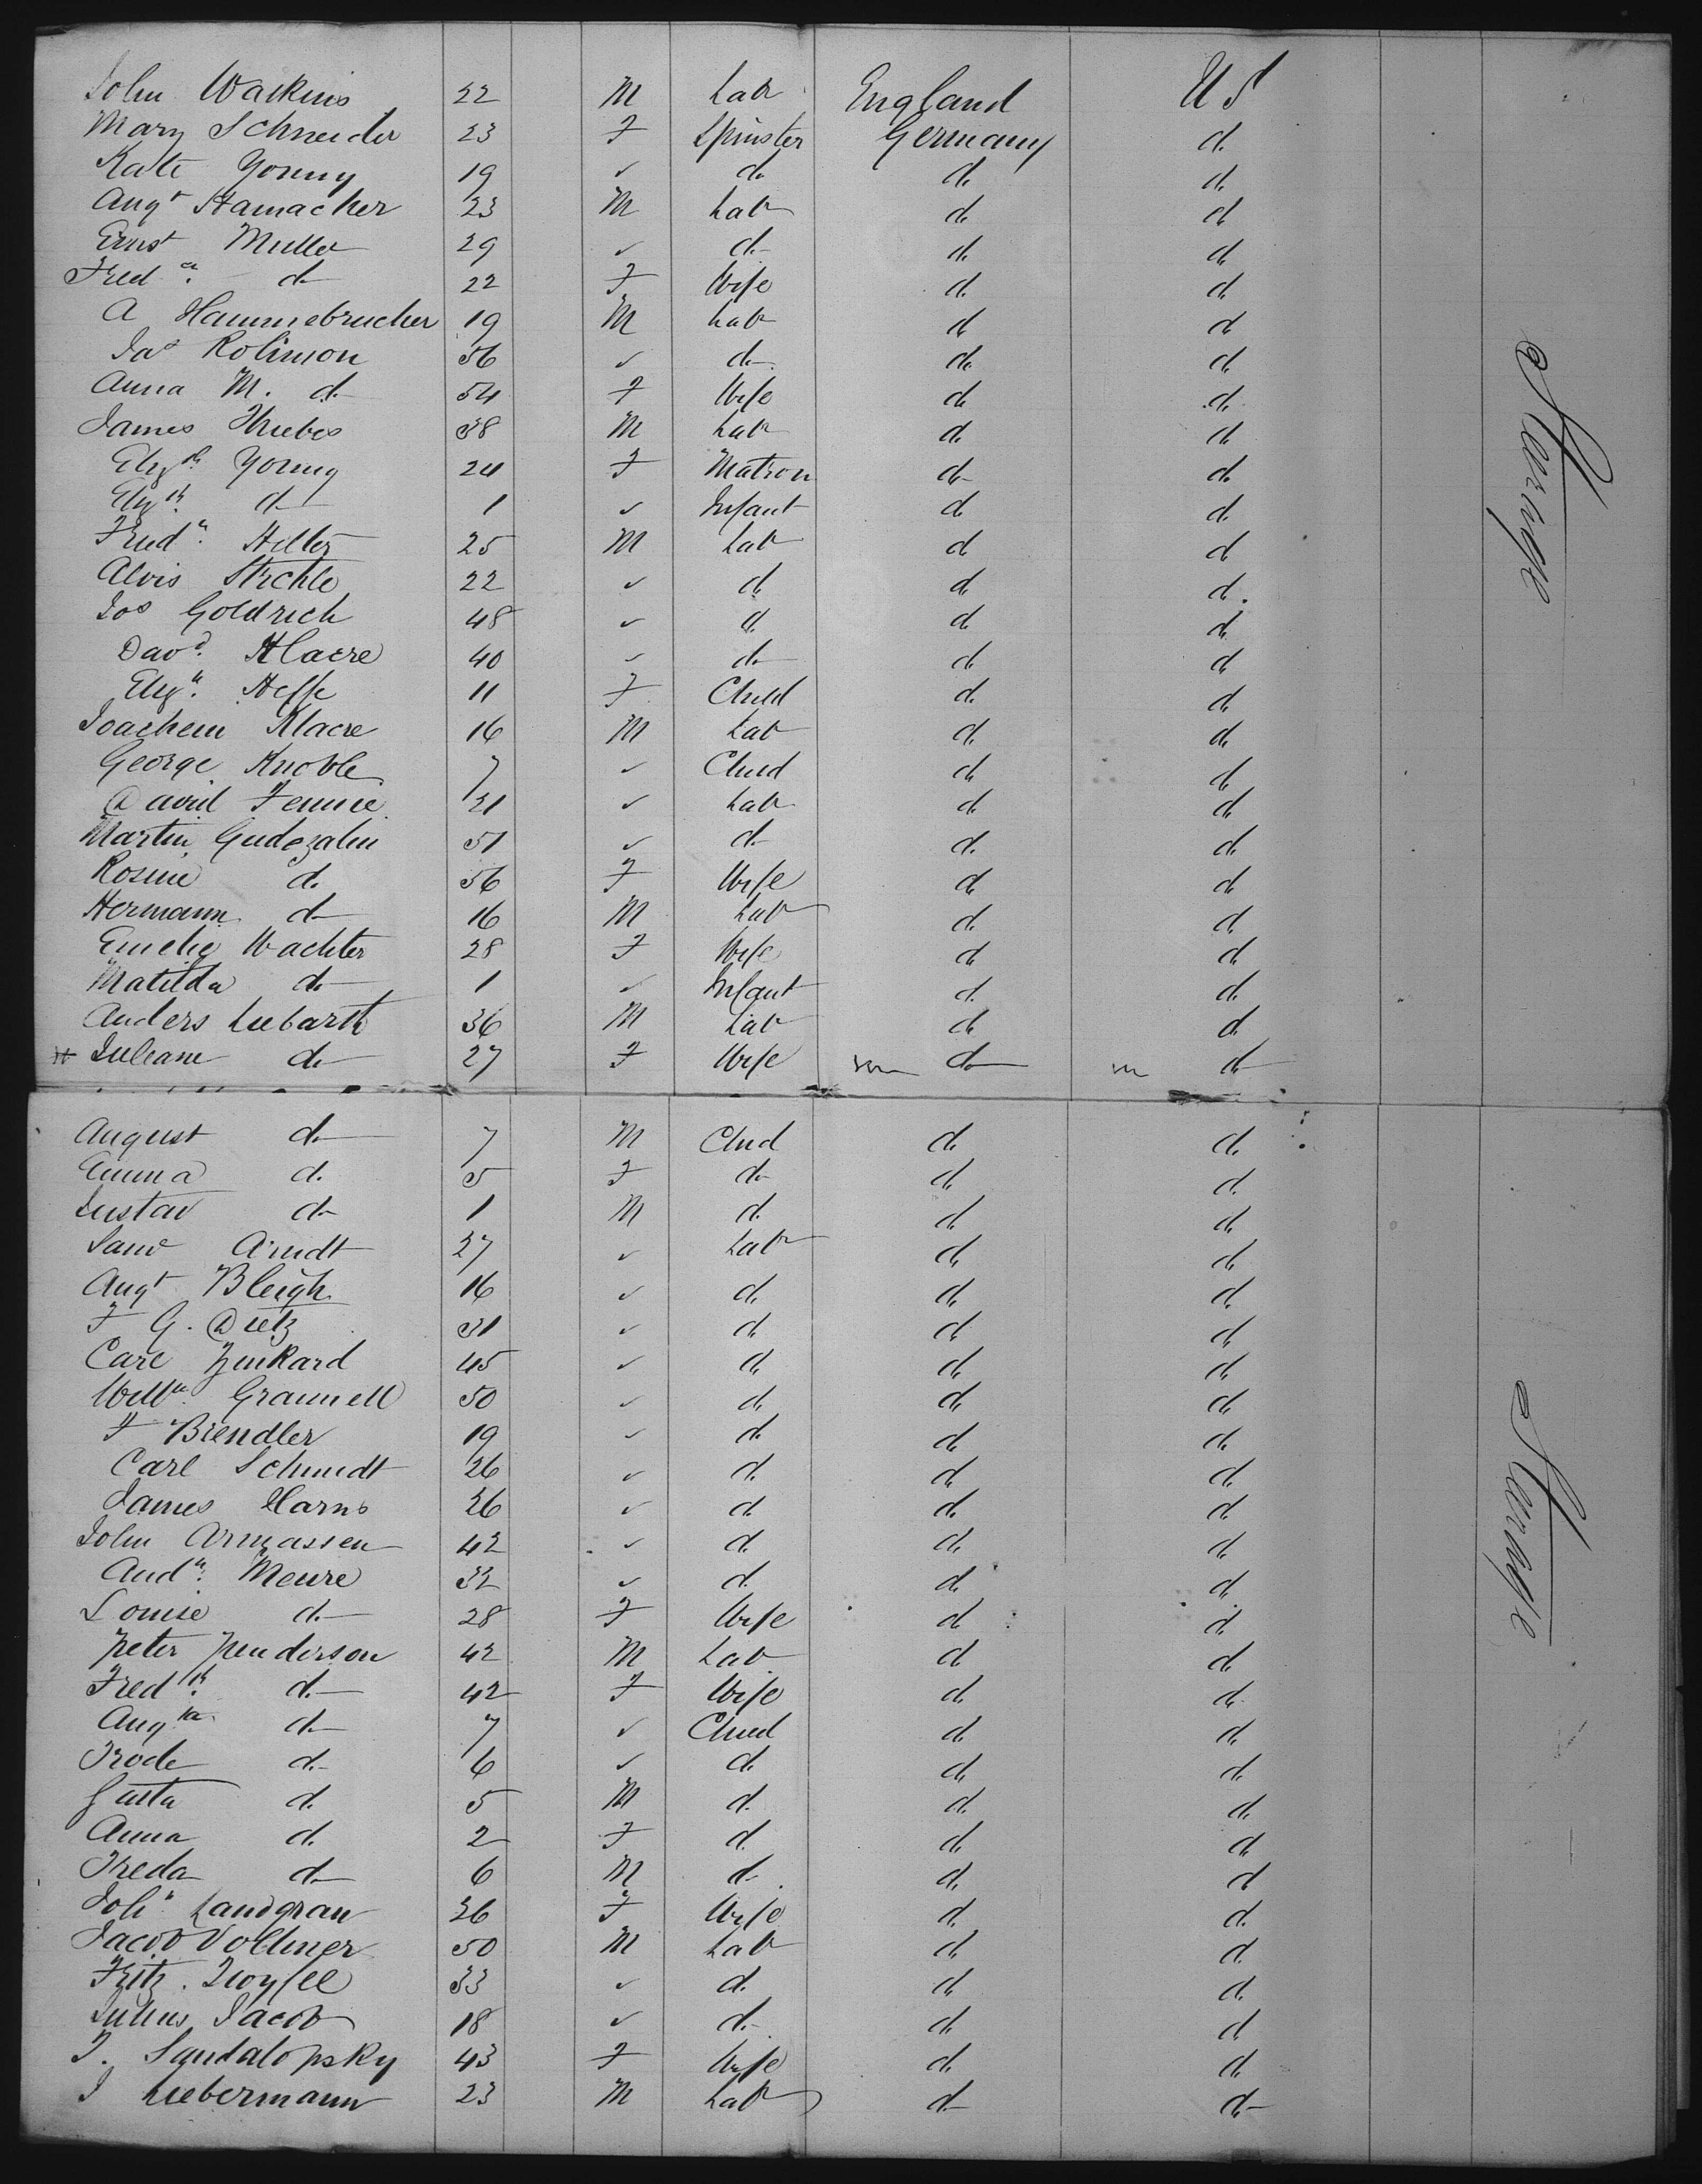 John Watkins 22 M Labr England US
Mary Schneider 23 F Spinster Germany d.
Kate Young 19 ✓ d. d. d.
Augt Hamacher 23 M Labr d. d
Ernst Muller 29 ✓ d. d. d.
Freda. d. 22 F Wife d. d.
A Hammebrucher 19 M Labr d d
Jas Robinson 56 ✓ d. d. d.
Anna M. d. 54 F Wife d. d.
James Thiebes 38 M Labr d. d.
Elizth. Young 24 F Matron d. d.
Elizth. d. 1 ✓ Infant d. d.
Fredk. Hiller 25 M Labr d d
Alvis Strehle 22 ✓ d. d. d.
Jos Goldrich 48 ✓ d. d. d.
Davd. Klacre 40 ✓ d. d. d.
Elizh. Heffe 11 F Child d. d.
Joachem Klacre 16 M Labr d. d.
George Knoble 7 ✓ Child d. d.
David Fennie 31 ✓ Labr d. d.
Martin Gudozalin 51 ✓ d. d. d.
Rosine d. 56 F Wife d. d.
Hermann d. 16 M Labr d. d.
Emelie Wachter 28 F Wife d. d.
Matilda d. 1 ✓ Infant d. d.
Anders Liebarth 36 M Labr d. d.
Juleane d. 27 F Wife d. d.
August d. 7 M Child d. d.
Emma d. 5 F d. d. d.
Gustav d. 1 M d. d. d.
Saml Arndt 27 ✓ Labr d. d.
Augt Bleigh 16 ✓ d. d. d.
F G. Dietz 31 ✓ d. d. d.
Carl Zinkard 45 ✓ d. d. d.
Willm. Grannell 50 ✓ d. d. d.
F Biendler 19 ✓ d. d. d.
Carl Schmidt 26 ✓ d. d. d.
James Harns 26 ✓ d. d. d.
John Armassen 42 ✓ d. d. d.
Andw. Meure 32 ✓ d. d. d.
Louise d. 28 F Wife d. d.
Peter Penderson 42 M Labr d. d.
Fredk. d. 42 F Wife d. d.
Augta d. 7 ✓ Child d. d.
Frode d. 6 ✓ d. d. d.
Gusta d. 5 M d. d. d.
Anna d. 2 F d. d. d.
Freda d. 6 M d. d. d.
Joha Landgran 26 F Wife d. d.
Jacob Vollmer 50 M Labr d. d.
Fritz. 33 ✓ d. d. d.
Julius Jacob 18 ✓ d. d. d.
J. Sandalopsky 43 F Wife d. d.
J Liebermann 23 M Labr d. d.
Steerage
Steerage